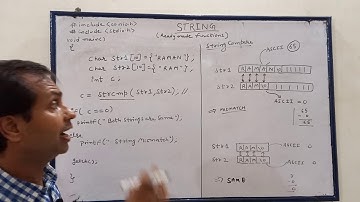 # include <conio.h>
# include <stdio.h>
void main()
{
STRING
(Readymade Functions)
char str1[10] = {"RAMAN"},
str2[10] = {"RAM"};
int c;
c = strcmp (str1, str2); //
if( c == 0)
printf(" Both Strings are Same");
else
printf(" String Mismatch");
getch();
}
String Compare
ASCII 65
Str1 R A M A N \0
Str2 R A M \0
ASCII 0
MISMATCH
65
- 0
65
Str1 R A M \0
ASCII 0
Str2 R A M \0
ASCII 0
SAME
0